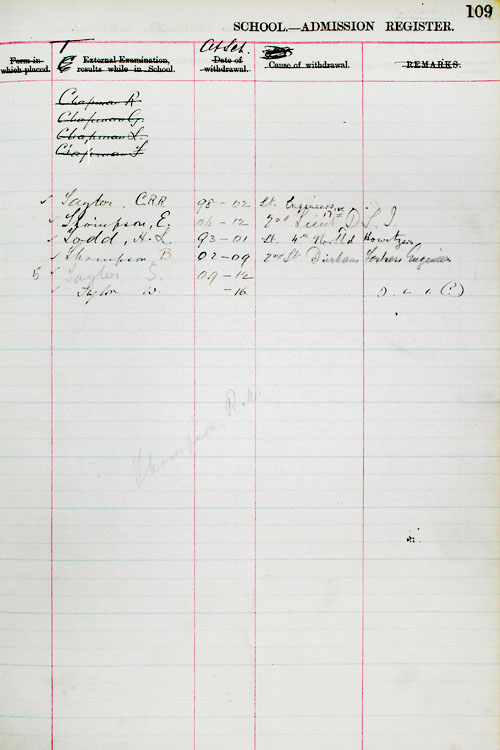 109
SCHOOL.—ADMISSION REGISTER.
T At Sch.
Form in which placed. External Examination, results while in School. Date of withdrawal. Cause of withdrawal. REMARKS.
Chapman R
Chapman G.
Chapman L.
Chapman F
Taylor, C.R.R. 98 - 02 Lt. Engineers
Thompson, E. 06 - 12 2nd Lieut 17th D L I
Todd, H.L. 93 - 01 Lt. 4th Howitzer
Thompson B 02 - 09 2nd Lt Durham Fortress Engineers
Taylor S. 09 - 12
Taylor W - 16 D. L. I.
Thompson,